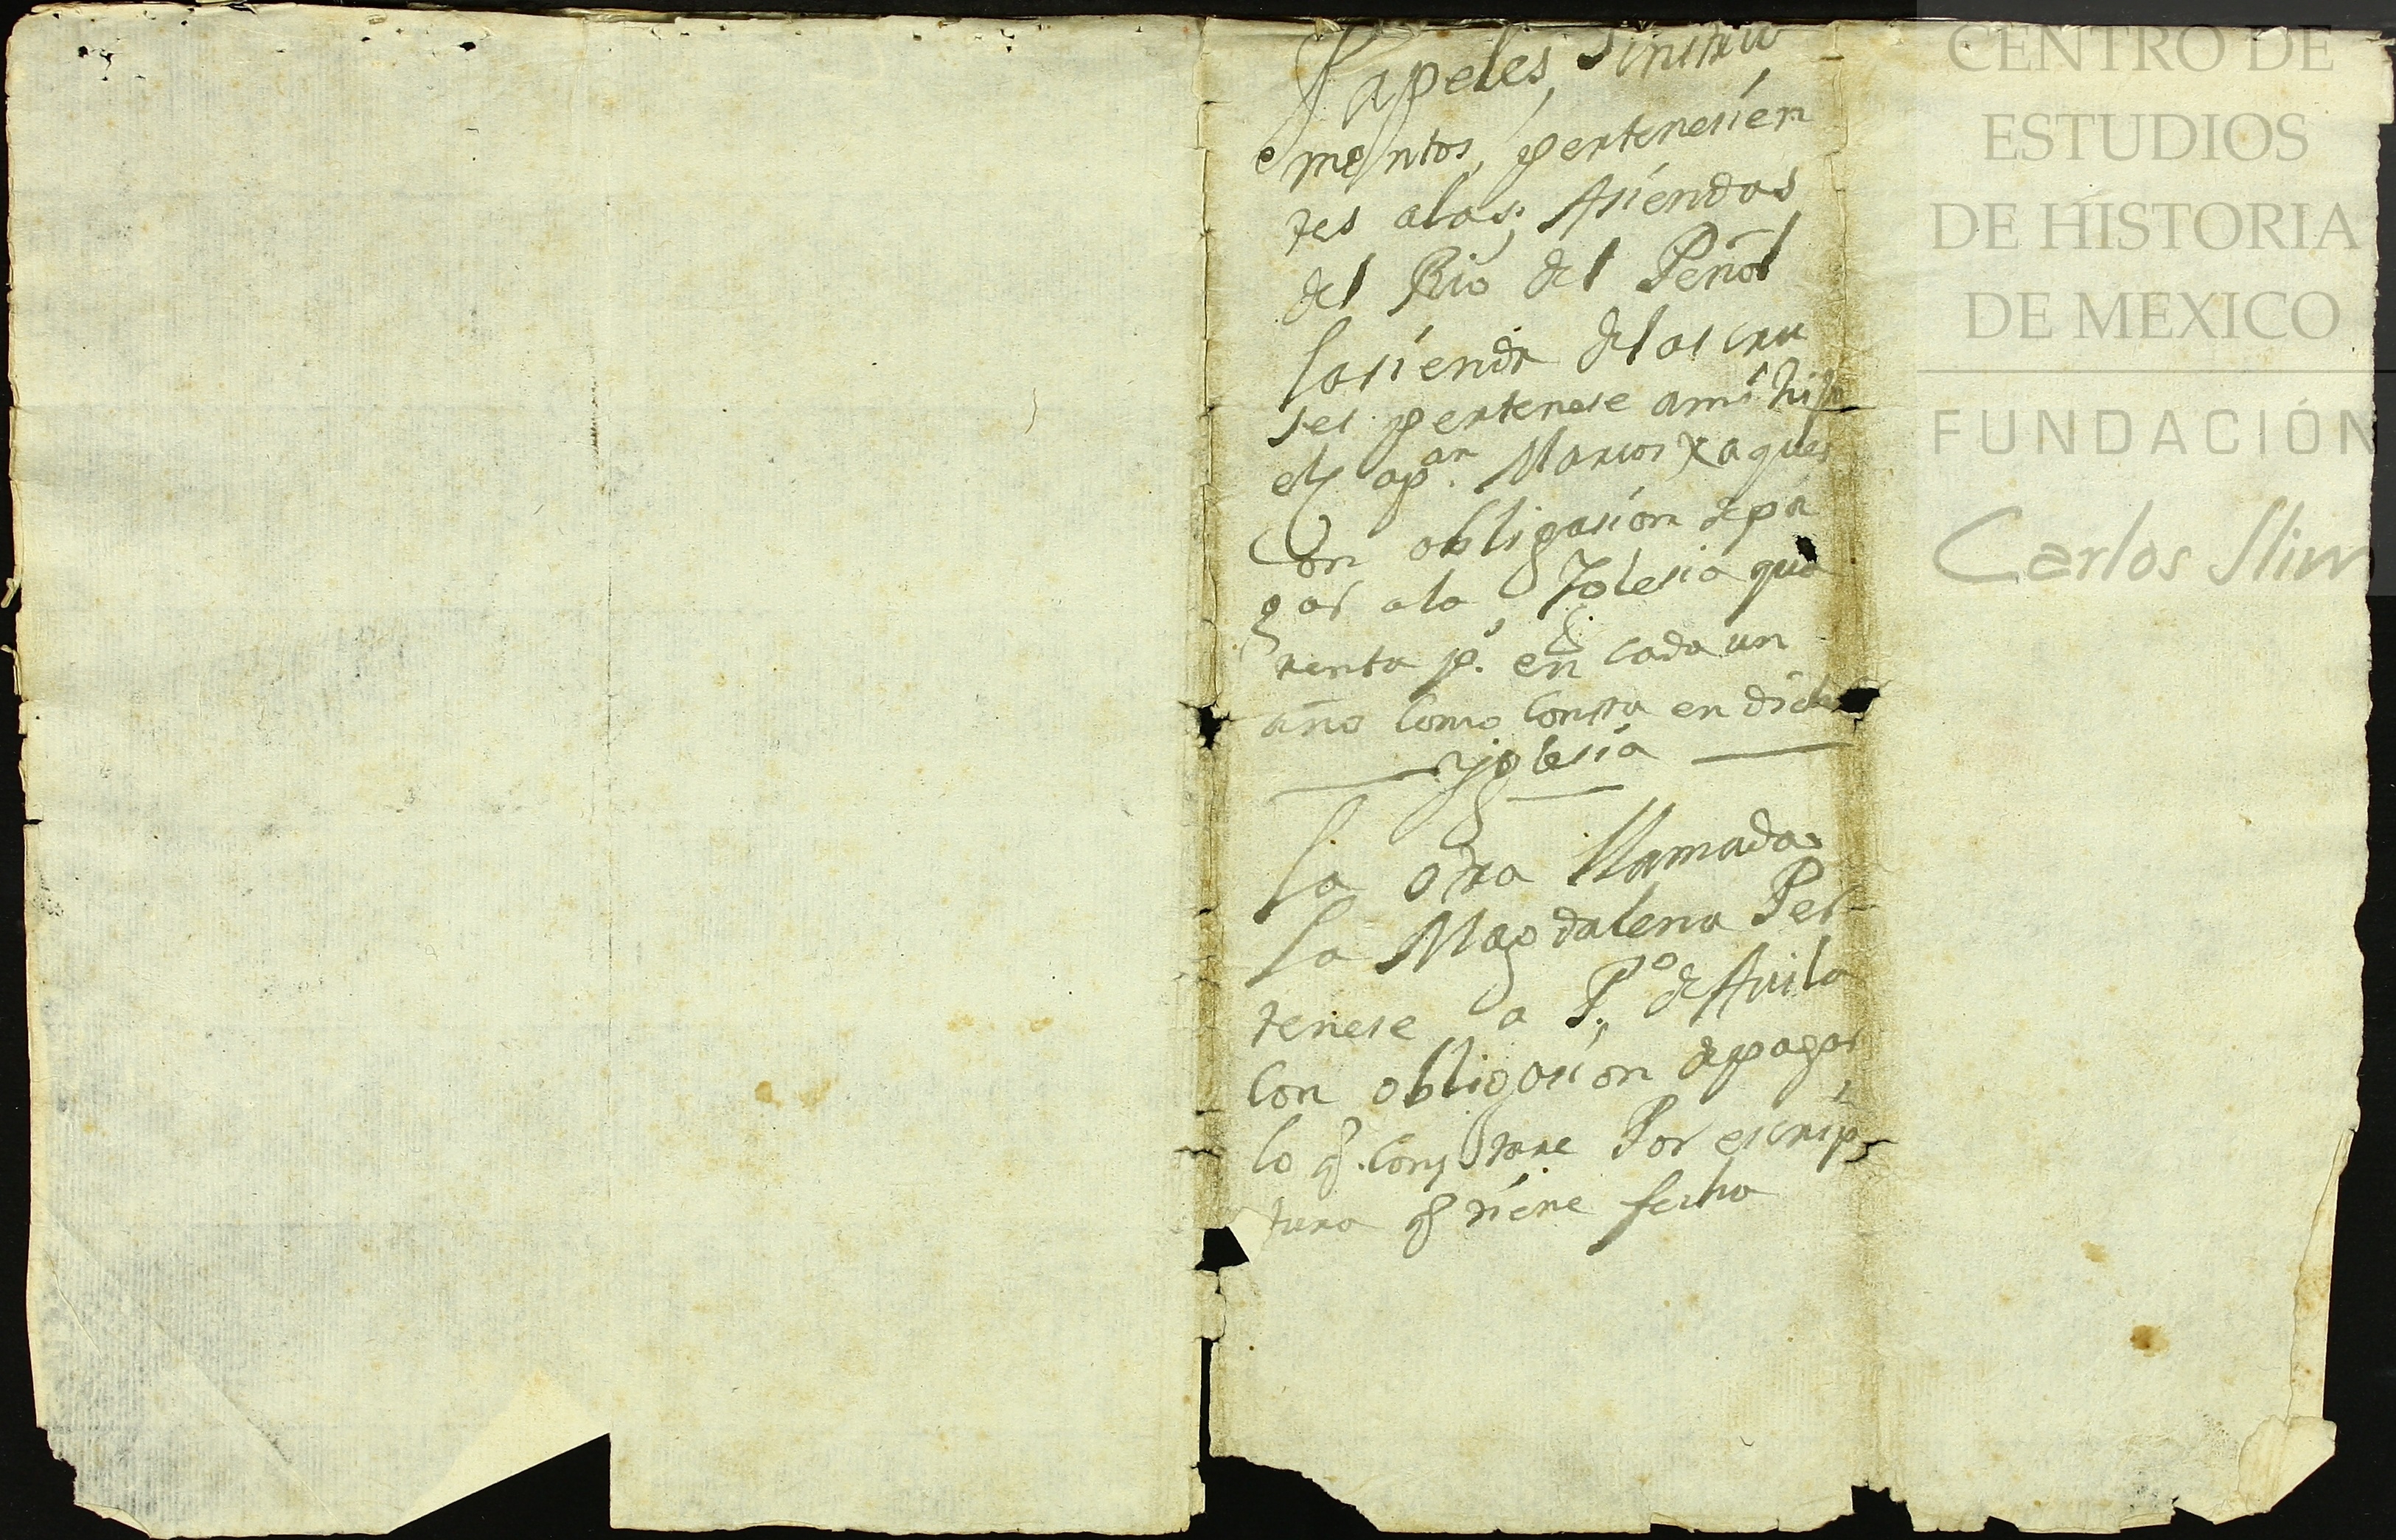 Papeles, Y instru
mentos, pertenesien
tes alas, Asiendas
del Rio del Peñol
la sienda delas cru
ses pertenese ami hijo
el cap.an Marcos Xaques
Con obligasion depa
gar ala Iglesia qua
renta p.s en cada un
año como consta en dicha
Yglesia
la otra llamada
la Magdalena Per-
tenese a P.o de Auila
con obligasion depagar
lo q. constare Por escrip
tura q tiene fecha
CENTRO DE
ESTUDIOS
DE HISTORIA
DE MEXICO
FUNDACIÓN
Carlos Slim